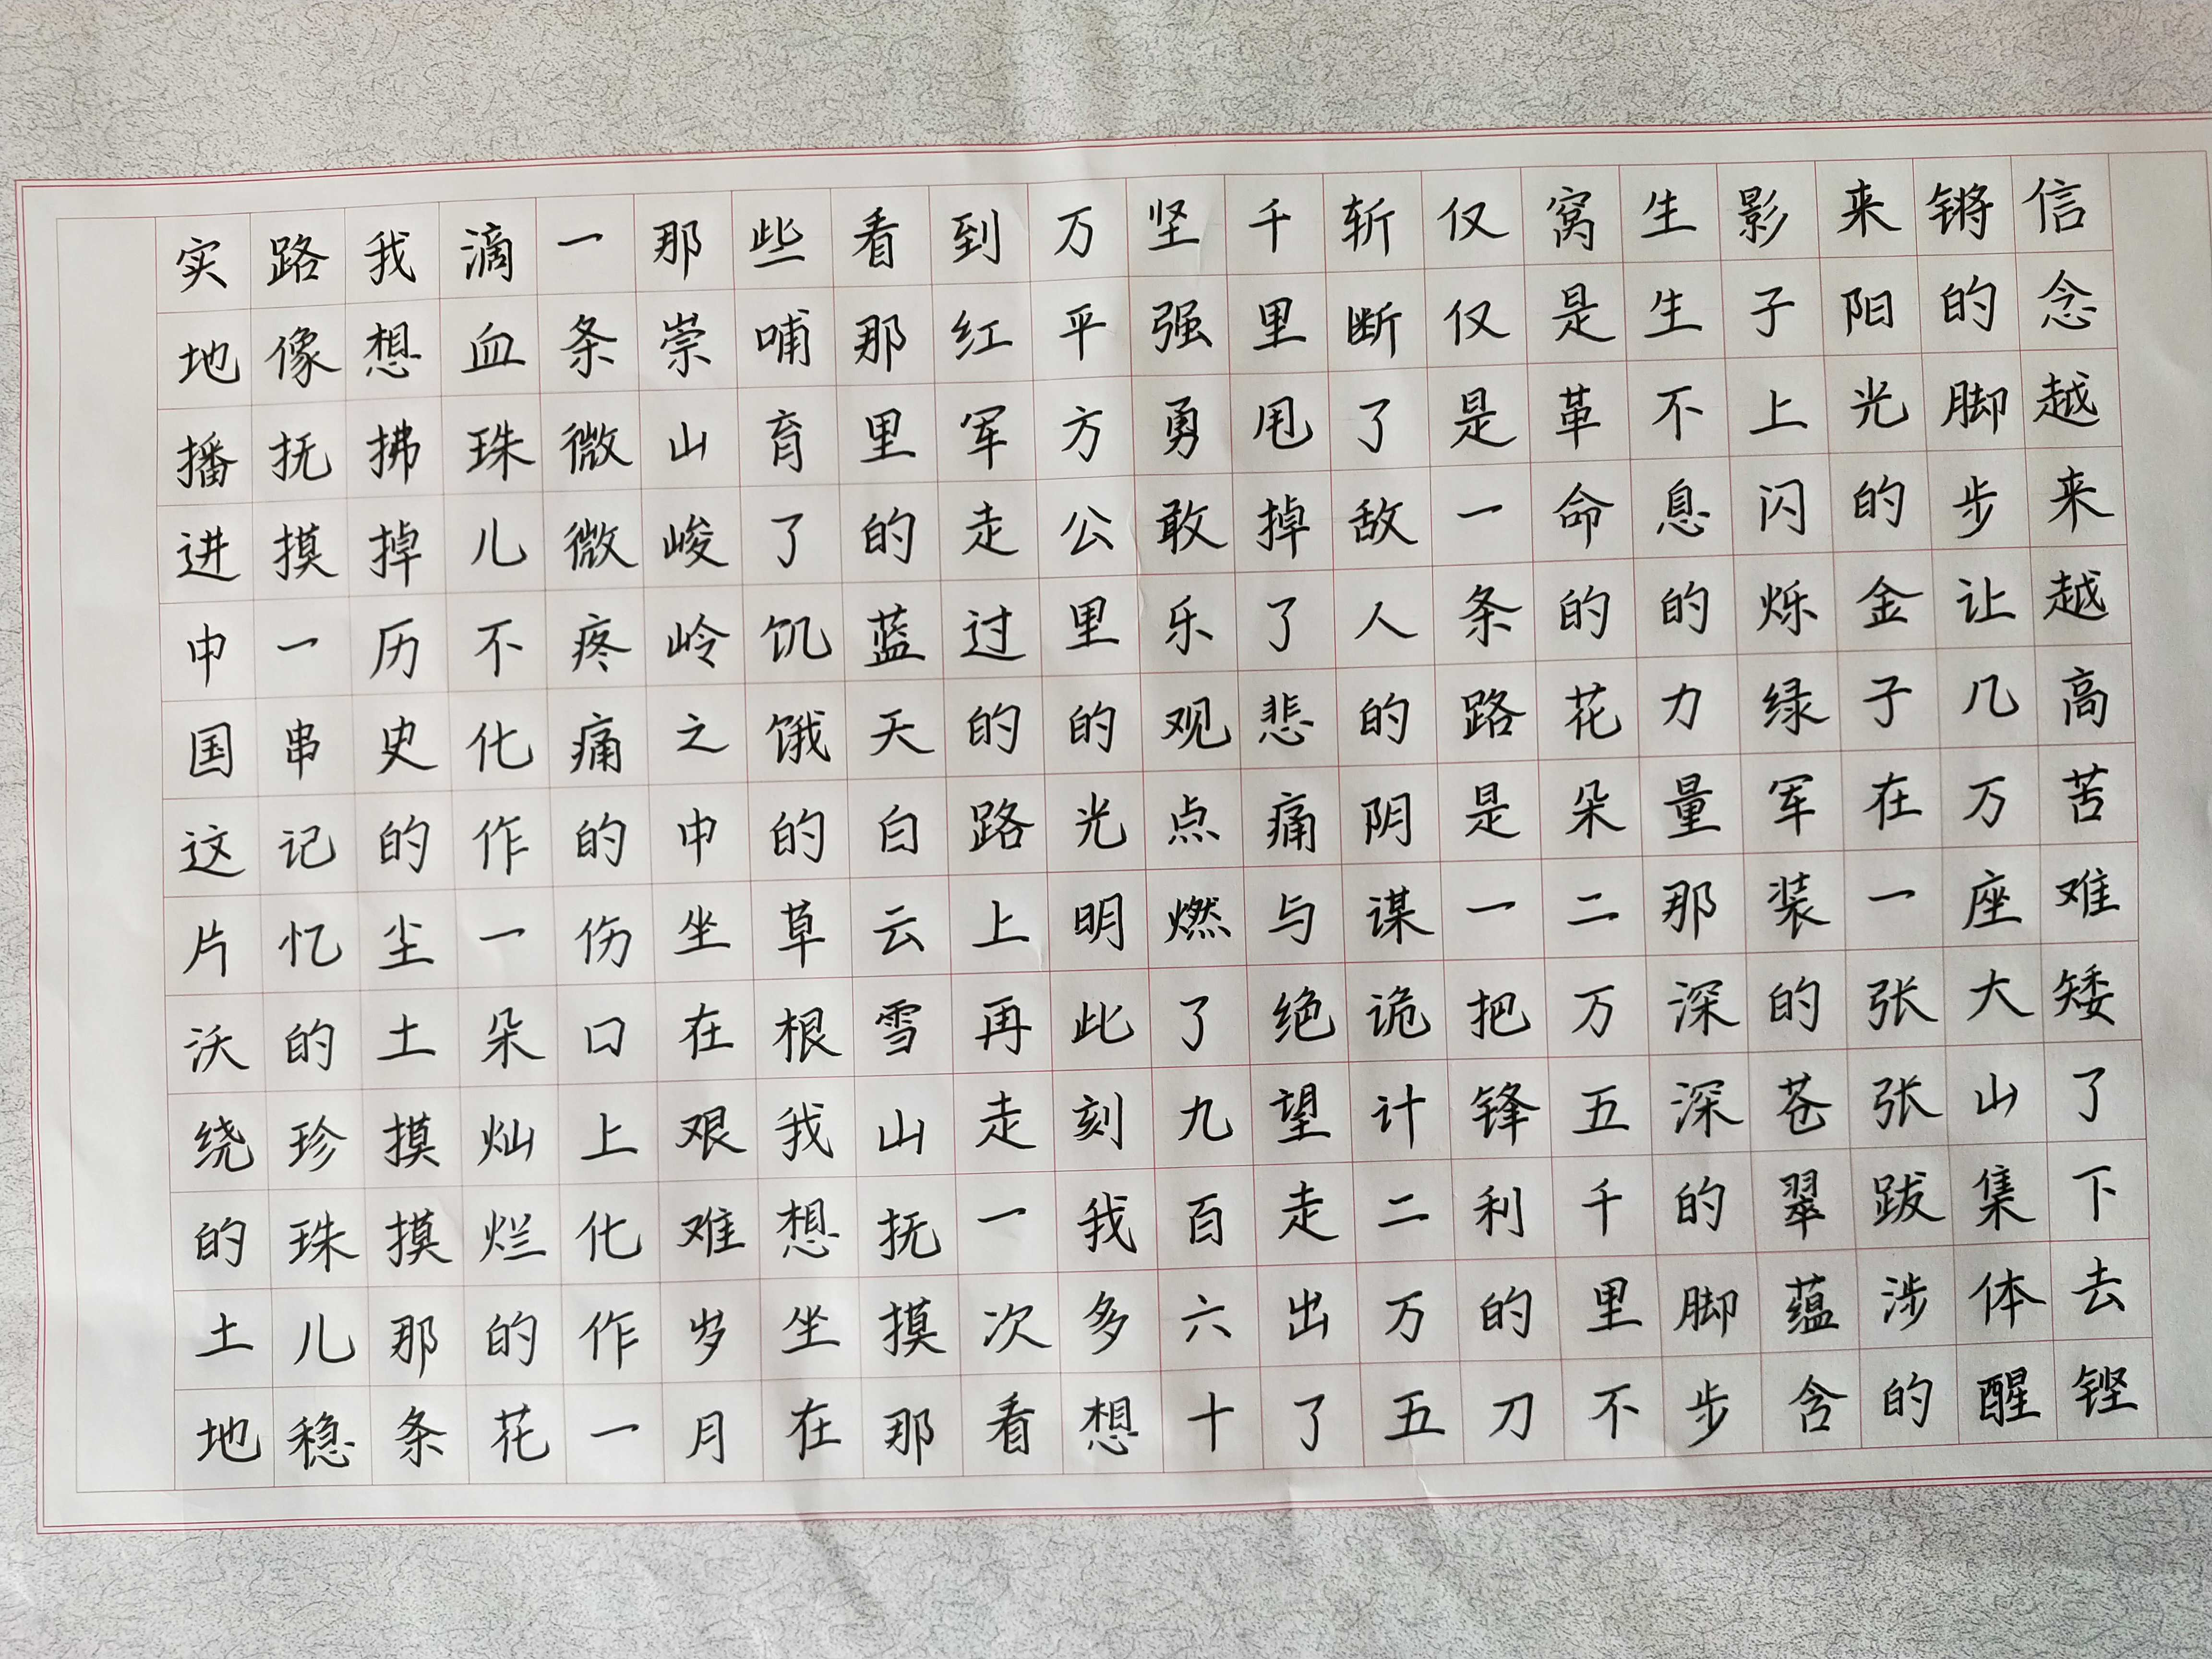 信念越来越高苦难矮了下去铿
锵的脚步让几万座大山集体醒
来阳光的金子在一张张跋涉的
影子上闪烁绿军装的苍翠蕴含
生生不息的力量那深深的脚步
窝是革命的花朵二万五千里不
仅仅是一条路是一把锋利的刀
斩断了敌人的阴谋诡计二万五
千里甩掉了悲痛与绝望走出了
坚强勇敢乐观点燃了九百六十
万平方公里的光明此刻我多想
到红军走过的路上再走一次看
看那里的蓝天白云雪山抚摸那
些哺育了饥饿的草根我想坐在
那崇山峻岭之中坐在艰难岁月
一条微微疼痛的伤口上化作一
滴血珠儿不化作一朵灿烂的花
我想拂掉历史的尘土摸摸那条
路像抚摸一串记忆的珍珠儿稳
实地播进中国这片沃绕的土地